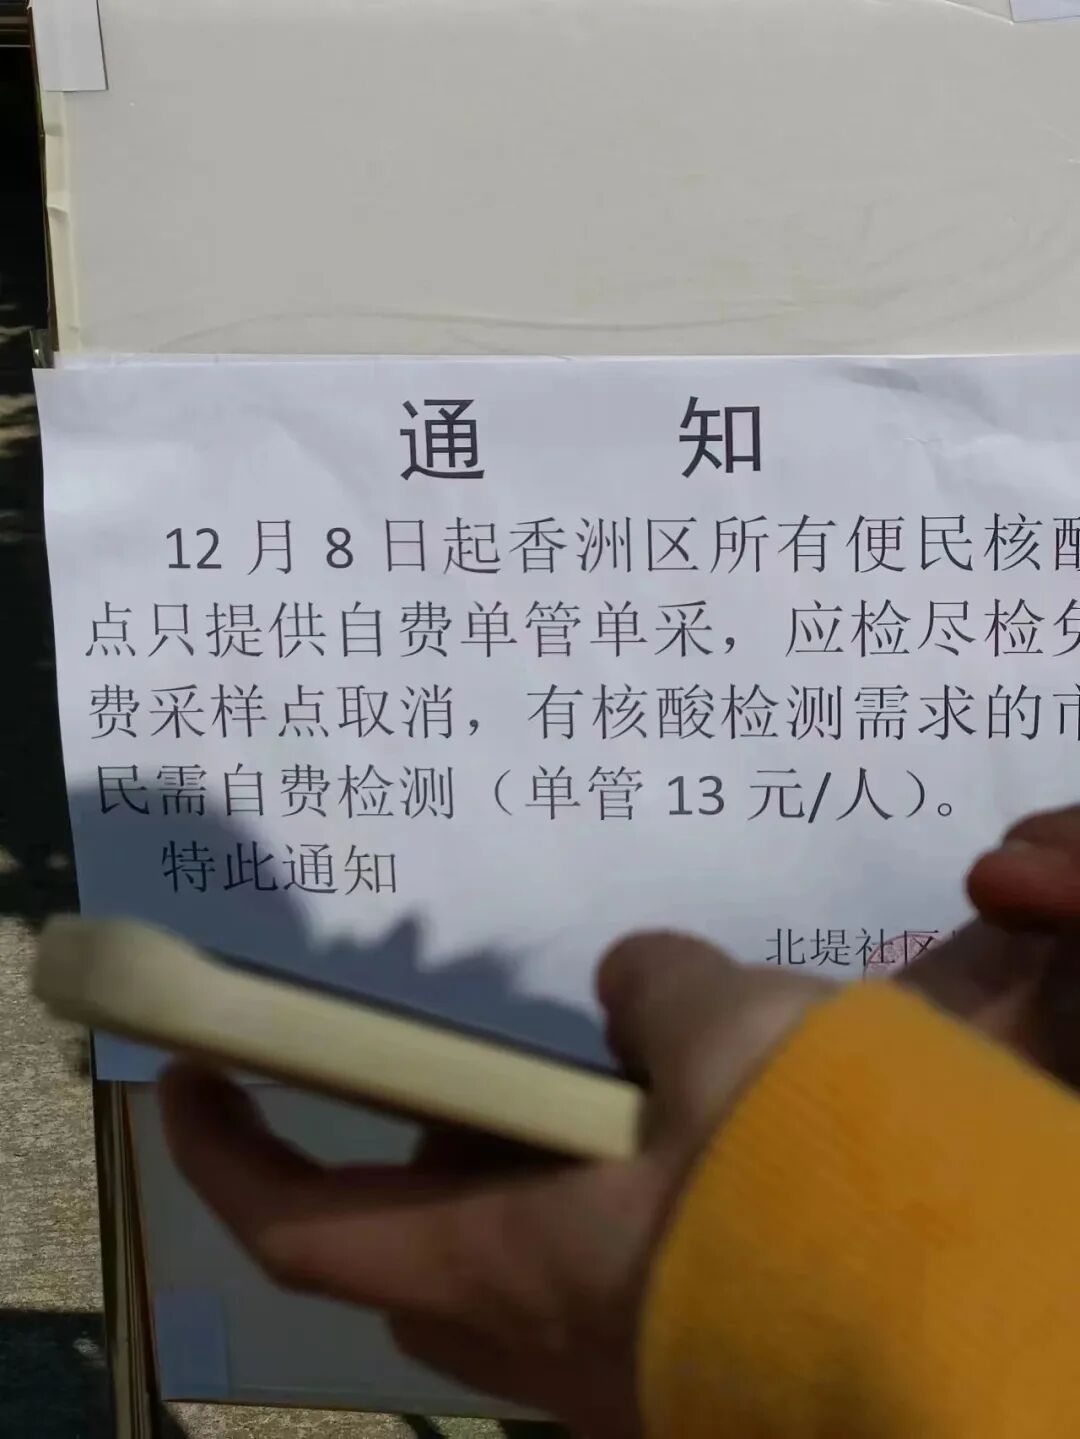 通 知
12 月 8 日起香洲区所有便民核酸
点只提供自费单管单采，应检尽检免
费采样点取消，有核酸检测需求的市
民需自费检测（单管 13 元/人）。
特此通知
北堤社区